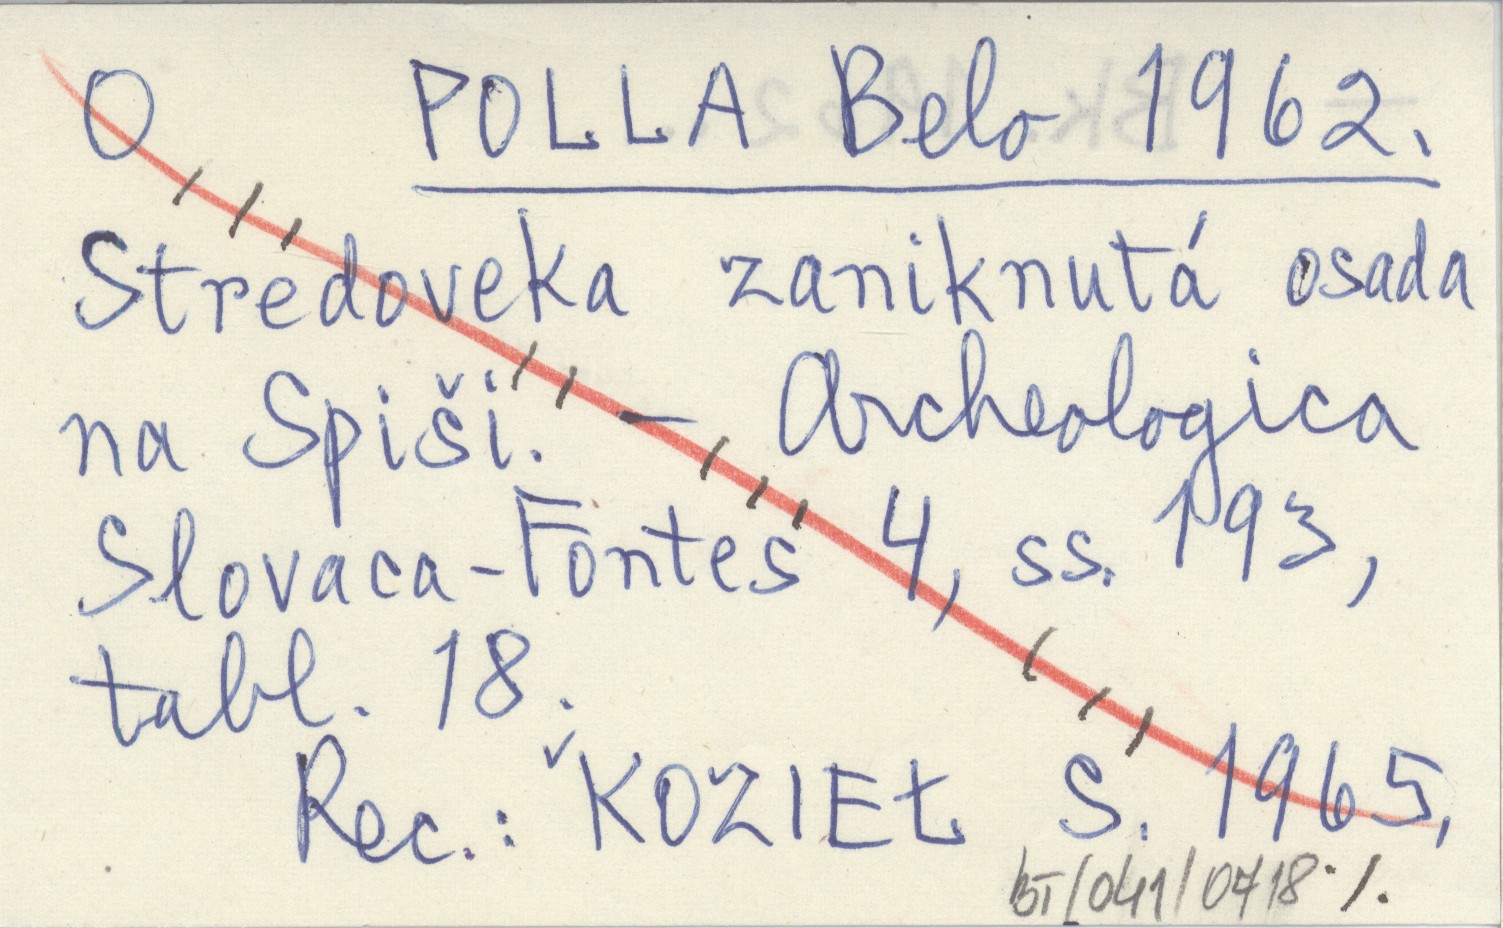 O POLLA Belo 1962.
Stredoveka zaniknutá osada
na Spiši. — Archeologica
Slovaca-Fontes 4, ss. 193,
tabl. 18.
Rec.: KOZIEŁ S. 1965,
BT/041/0718 ·/.